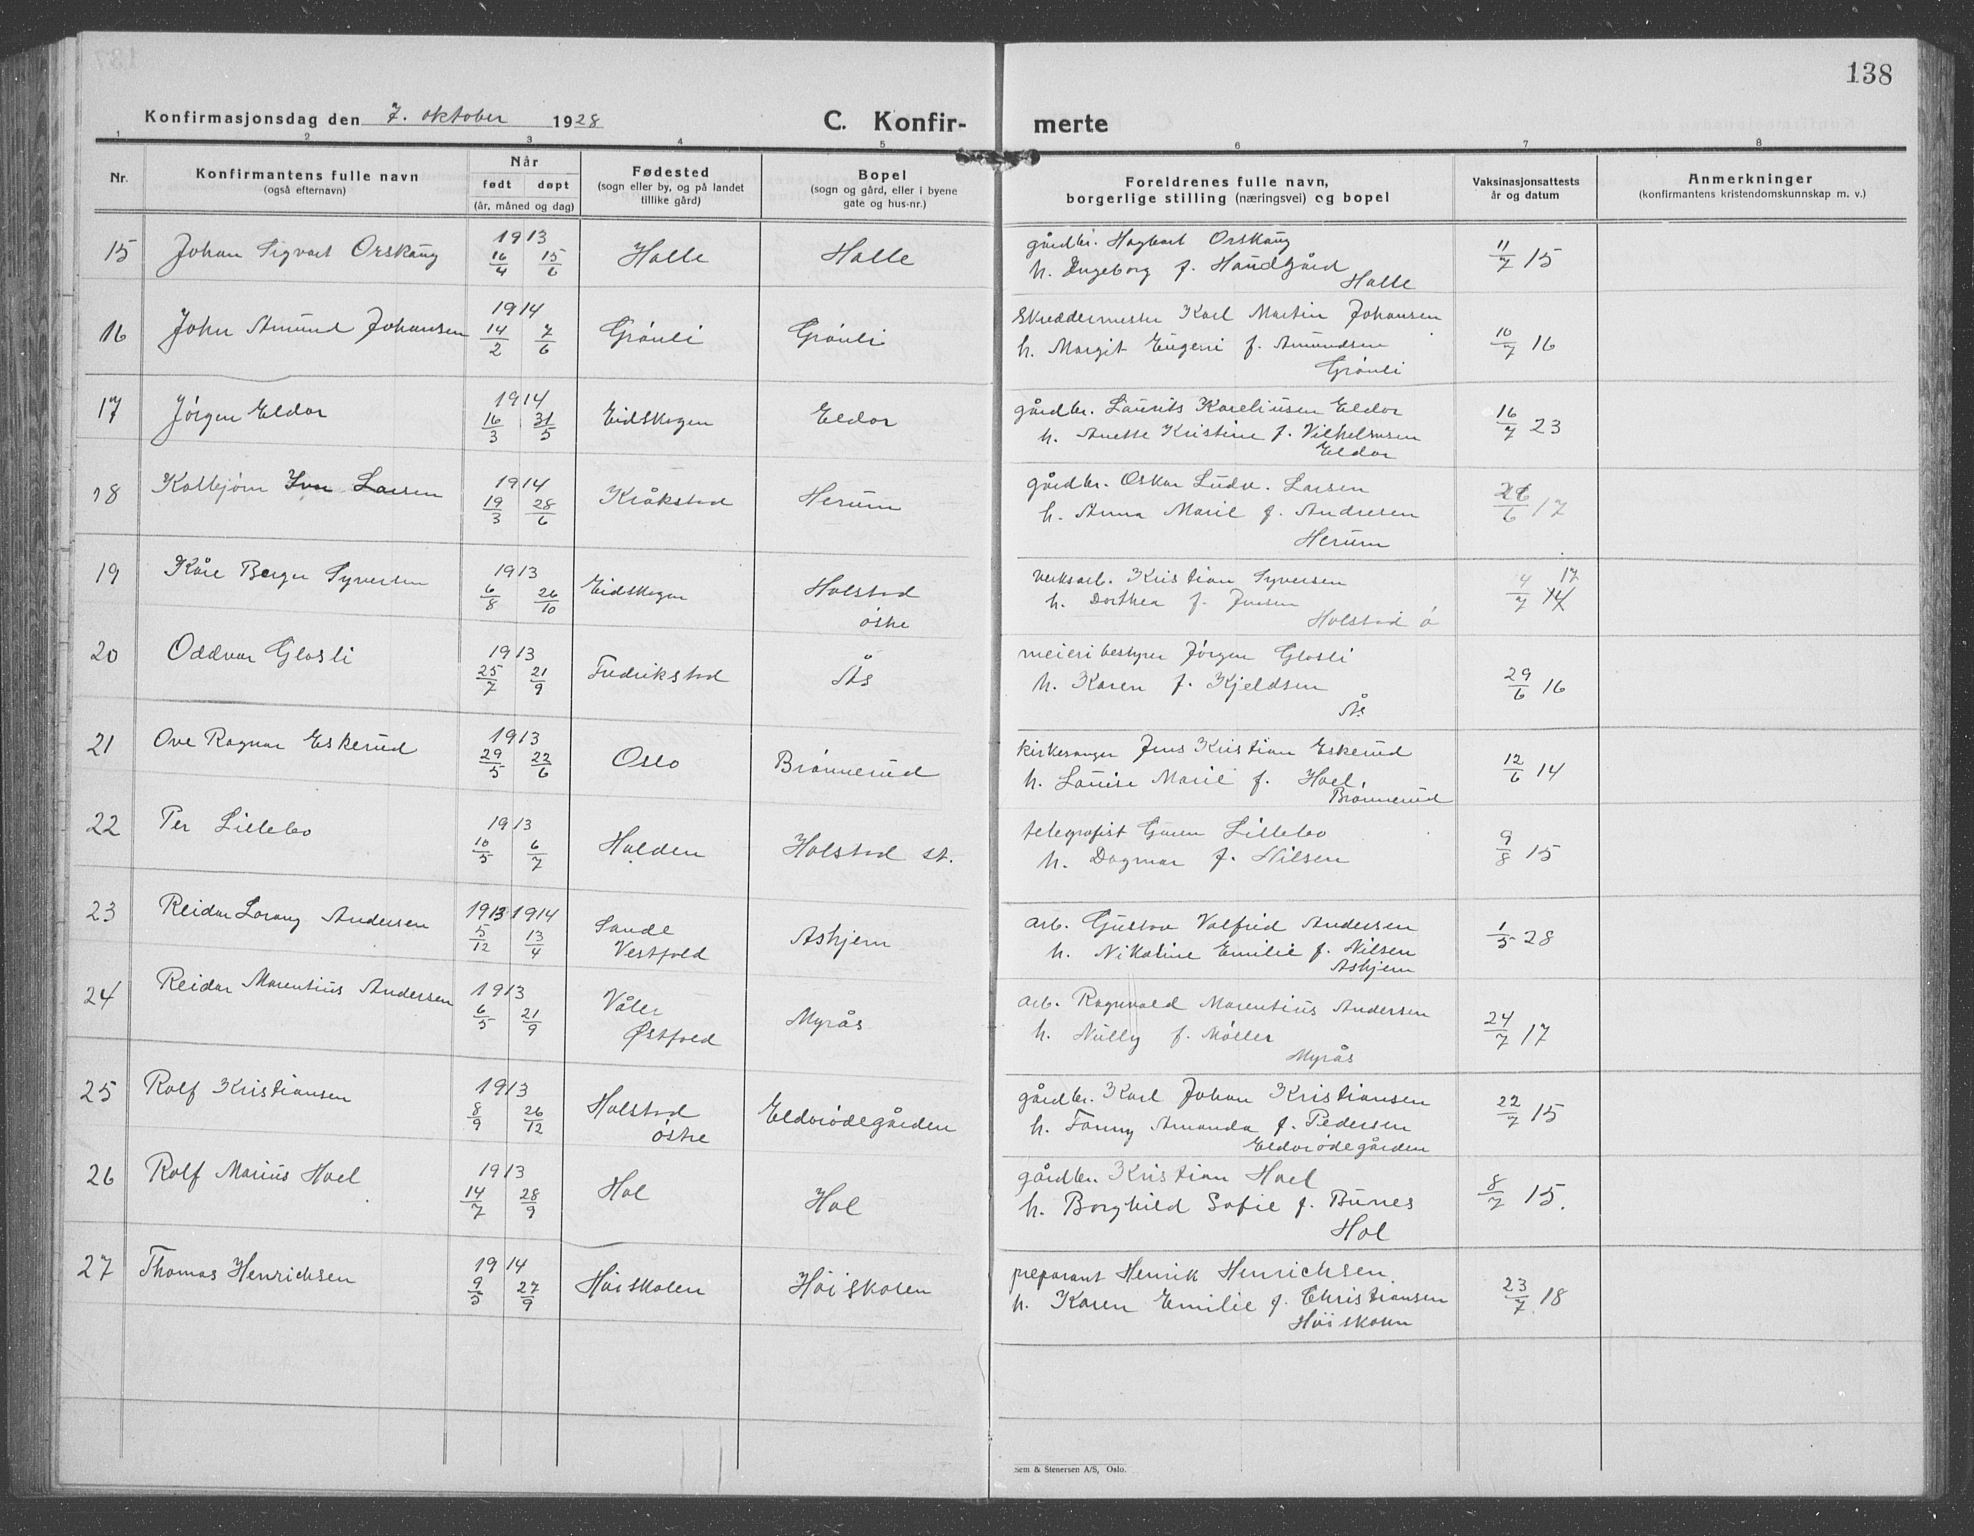 138
Konfirmasjonsdag den 7. oktober 1928
C. Konfir- merte
1 2 3 4 5 6 7 8
Nr. Konfirmantens fulle navn (også efternavn) Når født døpt (år, måned og dag) Fødested (sogn eller by, og på landet tillike gård) Bopel (sogn og gård, eller i byene gate og hus-nr.) Foreldrenes fulle navn, borgerlige stilling (næringsvei) og bopel Vaksinasjonsattests år og datum Anmerkninger (konfirmantens kristendomskunnskap m. v.)
15 Johan Sigvart Orskaug 1913 16/4 15/6 Holle Holle gårdbr. Hagbart Orskaug
h. Ingeborg f. Haudgård 11/7 15
Holle
16 John Amund Johansen 1914 14/2 7/6 Grönli Grönli Skreddermester Karl Martin Johansen
h. Margit Eugeni f. Amundsen 10/7 16
Grönli
17 Jörgen Eldor 1914 16/3 31/5 Eidskogen Eldor gårdbr. Laurits Kareliusen Eldor
h. Anette Kristine f. Vilhelmsen 16/7 23
Eldor
18 Kolbjörn Ivar Larsen 1914 19/3 28/6 Kråkstad Herum gårdbr. Oskar Ludv. Larsen
h. Anna Marie f. Andresen 26/6 17
Herum
19 Kåre Berger Syversen 1913 6/8 26/10 Eidskogen Holstad östre verksarb. Kristian Syversen 17
h. Dorthea f. Jensen 4/7 14
Holstad ö
20 Oddvar Glosli 1913 25/7 21/9 Fredrikstad Ås meieribestyrer Jörgen Glosli
h. Karen f. Kjeldsen 29/6 16
Ås
21 Ove Ragnar Eskerud 1913 29/5 22/6 Oslo Brönnerud kirkesanger Jens Kristian Eskerud
h. Louise Marie f. Hoel 12/6 14
Brönnerud
22 Per Lillebo 1913 10/5 6/7 Halden Holstad st. telegrafist Lillebo
h. Dagmar f. Nilsen 9/8 15
23 Reidar Lorang Andersen 1913 1914 5/12 13/4 Sande Vestfold Askjem arb. Gustav Valfrid Andersen
h. Nikoline Emilie f. Nilsen 1/5 28
Askjem
24 Reidar Marentius Andersen 1913 6/5 21/9 Våler Østfold Myrås arb. Ragnvald Marentius Andersen
h. Nully f. Möller 24/7 17
Myrås
25 Rolf Kristiansen 1913 8/9 26/12 Holstad östre Eldorödegården gårdbr. Karl Johan Kristiansen
h. Fanny Amanda f. Pedersen 22/7 15
Eldorödegården
26 Rolf Marius Hoel 1913 14/7 28/9 Hol Hol gårdbr. Kristian Hoel
h. Borghild Sofie f. Bunes 8/7 15.
Hol
27 Thomas Henrichsen 1914 9/5 27/9 Höiskolen Höiskolen preparant Henrik Henrichsen
h. Karen Emilie f. Christiansen 23/7 18
Höiskolen
Sem & Stenersen A/S, Oslo.